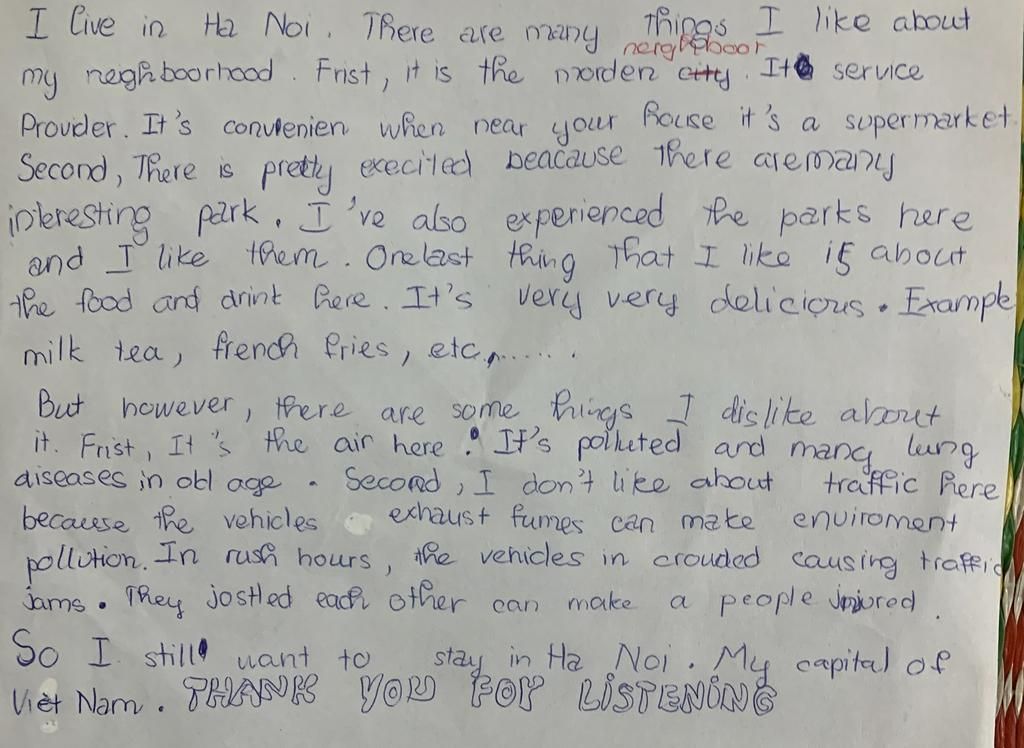 I live in Ha Noi. There are many things I like about
neighboor
my neighboorhood. Frist, it is the morden city. It service
Provider. It's convienien when near your house it's a supermarket
Second, There is pretty execited beacause there are many
interesting park. I've also experienced the parks here
and I like them. One last thing that I like is about
the food and drink here. It's very very delicious. Example
milk tea, french fries, etc,......
But however, there are some things I dislike about
it. Frist, It's the air here. It's polluted and many lung
diseases in old age. Second, I don't like about traffic here
because the vehicles exhaust fumes can make enviroment
pollution. In rush hours, the vehicles in crouded causing traffic
jams. They jostled each other can make a people injured.
So I still want to stay in Ha Noi. My capital of
Việt Nam. THANK YOU FOR LiSTENiNG